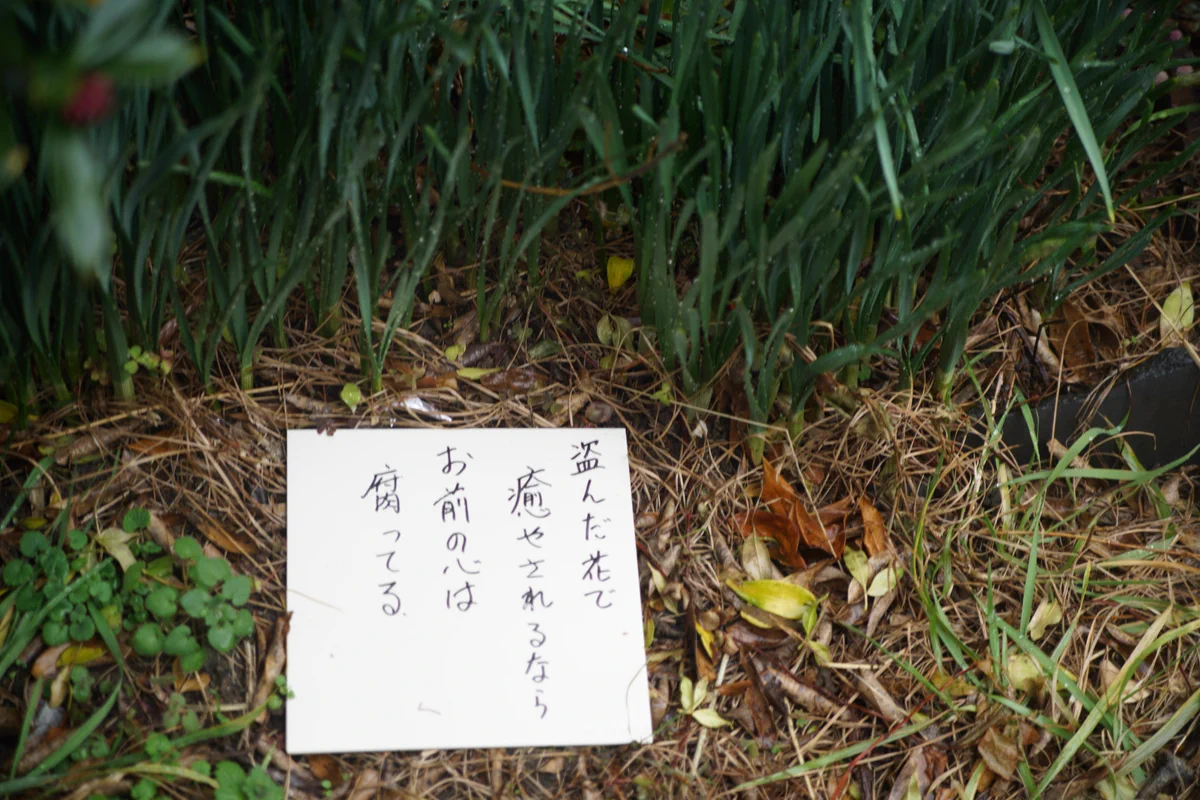 盗んだ花で
癒やされるなら
お前の心は
腐ってる.